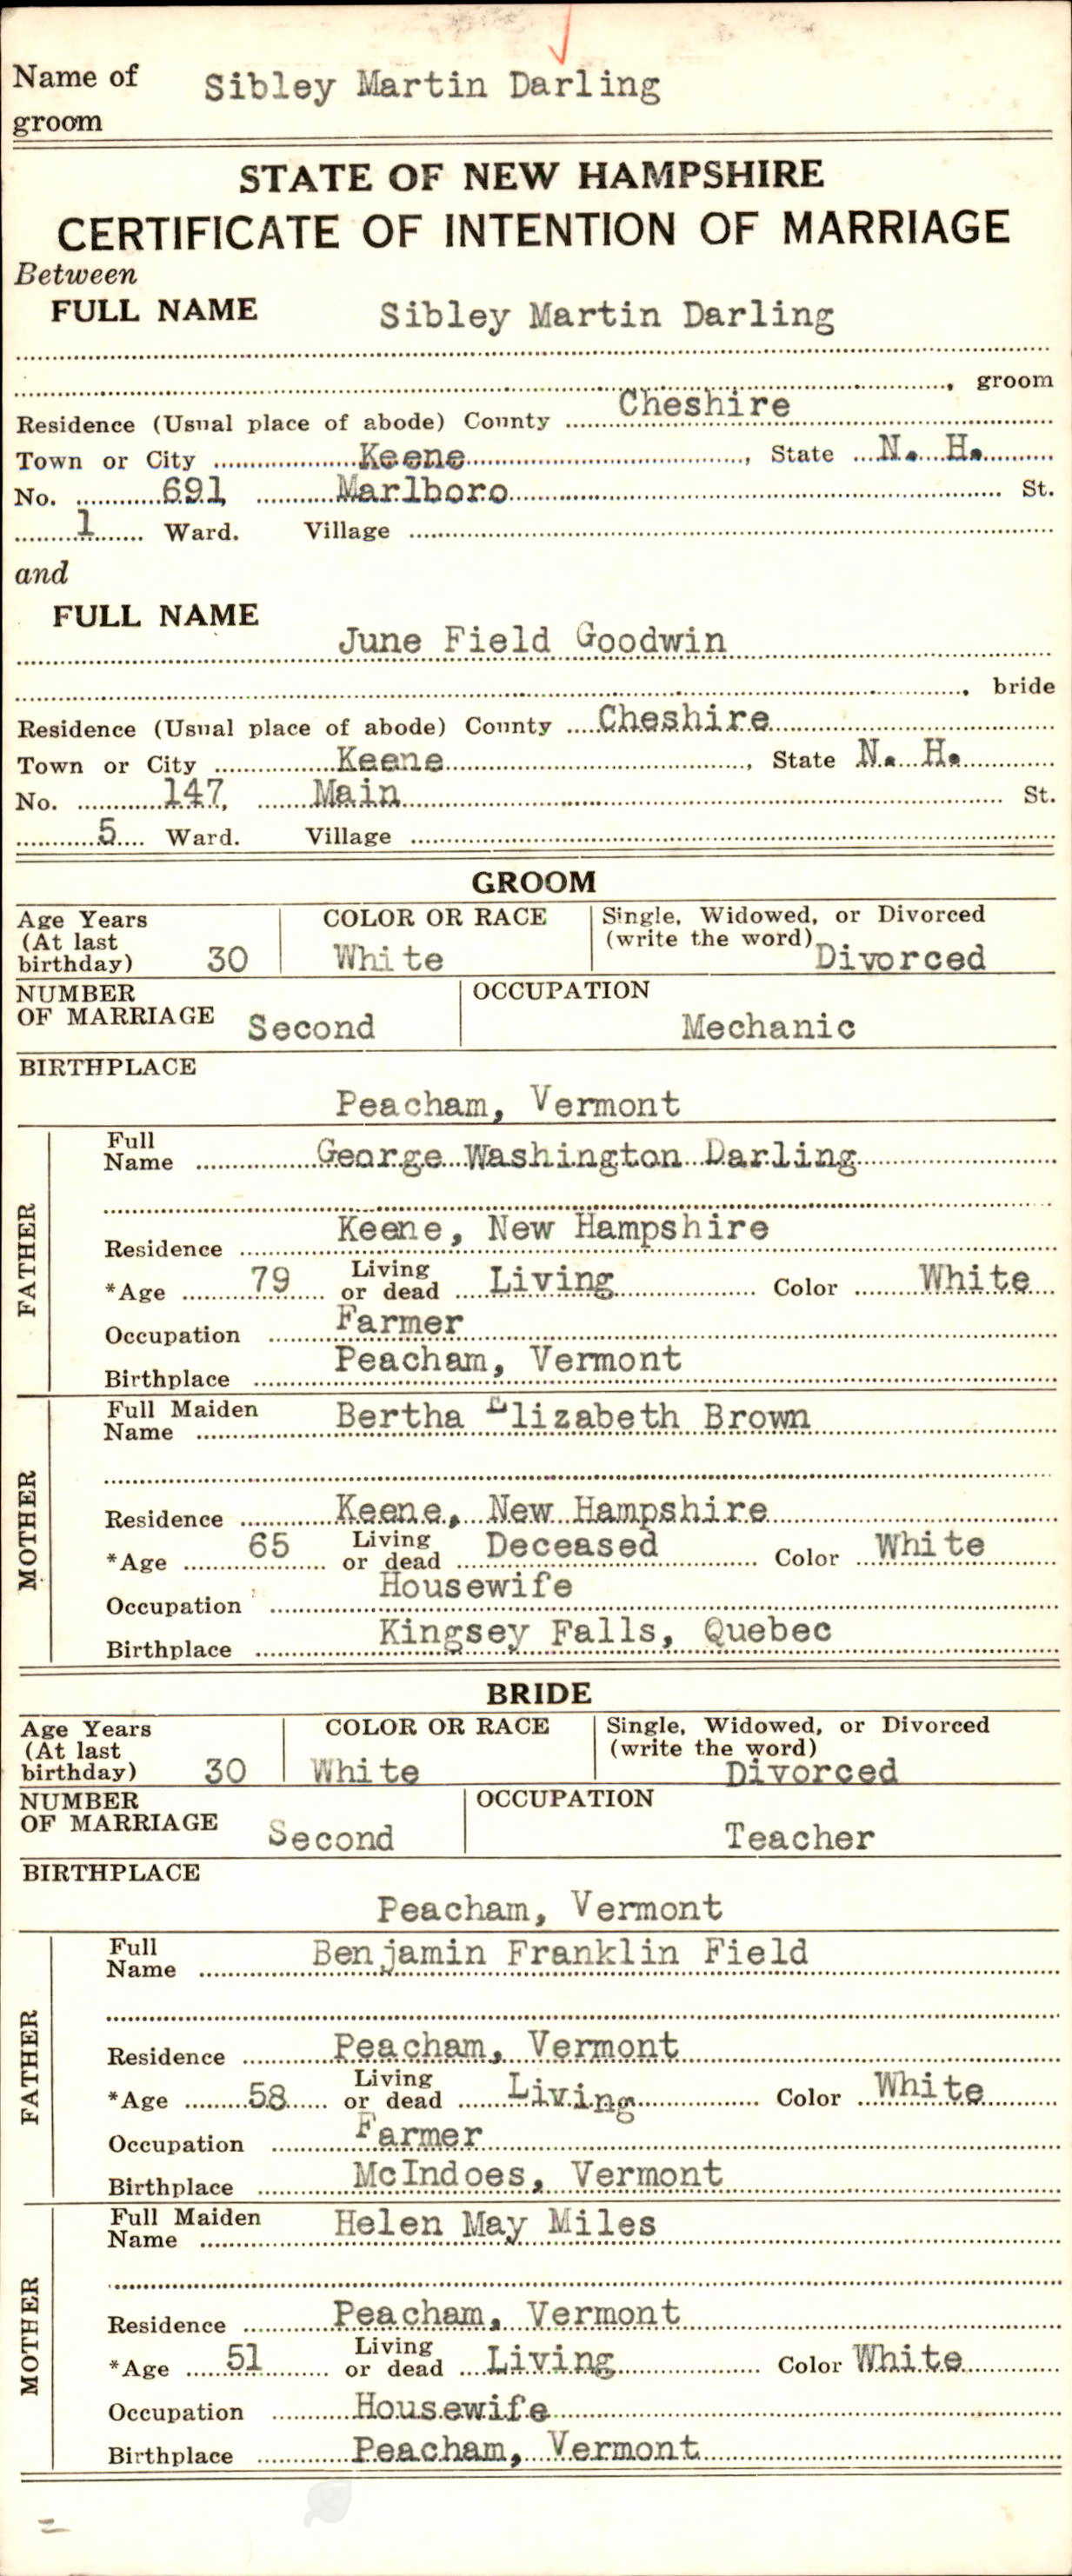 Name of Sibley Martin Darling
groom
STATE OF NEW HAMPSHIRE
CERTIFICATE OF INTENTION OF MARRIAGE
Between
FULL NAME Sibley Martin Darling
, groom
Residence (Usual place of abode) County Cheshire
Town or City Keene, State N. H.
No. 691, Marlboro St.
1 Ward. Village
and
FULL NAME
June Field Goodwin
, bride
Residence (Usual place of abode) County Cheshire
Town or City Keene, State N. H.
No. 147, Main St.
5 Ward. Village
GROOM
Age Years COLOR OR RACE Single, Widowed, or Divorced
(At last (write the word)
birthday) 30 White Divorced
NUMBER OCCUPATION
OF MARRIAGE Second Mechanic
BIRTHPLACE
Peacham, Vermont
FATHER
Full
Name George Washington Darling
Residence Keene, New Hampshire
*Age 79 Living or dead Living Color White
Occupation Farmer
Birthplace Peacham, Vermont
MOTHER
Full Maiden
Name Bertha Elizabeth Brown
Residence Keene, New Hampshire
*Age 65 Living or dead Deceased Color White
Occupation Housewife
Birthplace Kingsey Falls, Quebec
BRIDE
Age Years COLOR OR RACE Single, Widowed, or Divorced
(At last (write the word)
birthday) 30 White Divorced
NUMBER OCCUPATION
OF MARRIAGE Second Teacher
BIRTHPLACE
Peacham, Vermont
FATHER
Full
Name Benjamin Franklin Field
Residence Peacham, Vermont
*Age 58 Living or dead Living Color White
Occupation Farmer
Birthplace McIndoes, Vermont
MOTHER
Full Maiden
Name Helen May Miles
Residence Peacham, Vermont
*Age 51 Living or dead Living Color White
Occupation Housewife
Birthplace Peacham, Vermont